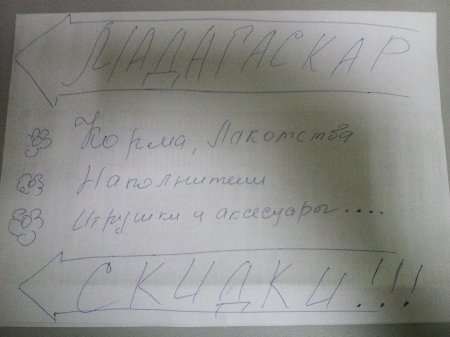 МАДАГАСКАР
Корма, Лакомства
Наполнители
Игрушки и аксесуары....
СКИДКИ!!!